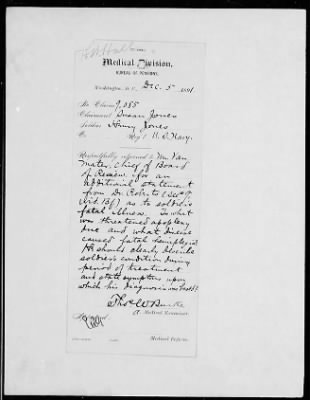 Medical Division,
BUREAU OF PENSIONS,
Washington, D.C., Dec. 5, 1891
No. Claim 9,085
Claimant Susan Jones
Soldier Henry Jones
Co. Reg't U.S. Navy.
Respectfully referred to Mr. Van
Mater, Chief of Board
of Review for an
additional statement
from Dr. Roberts
as to soldier's
fatal illness. To what
was threatened apoplexy
due and what disease
caused fatal hemiplegia?
He should clearly describe
soldier's condition during
period of treatment
and state symptoms upon
which his diagnosis was based.
Thos. W. Burke
A. Medical Examiner.
Medical Referee.